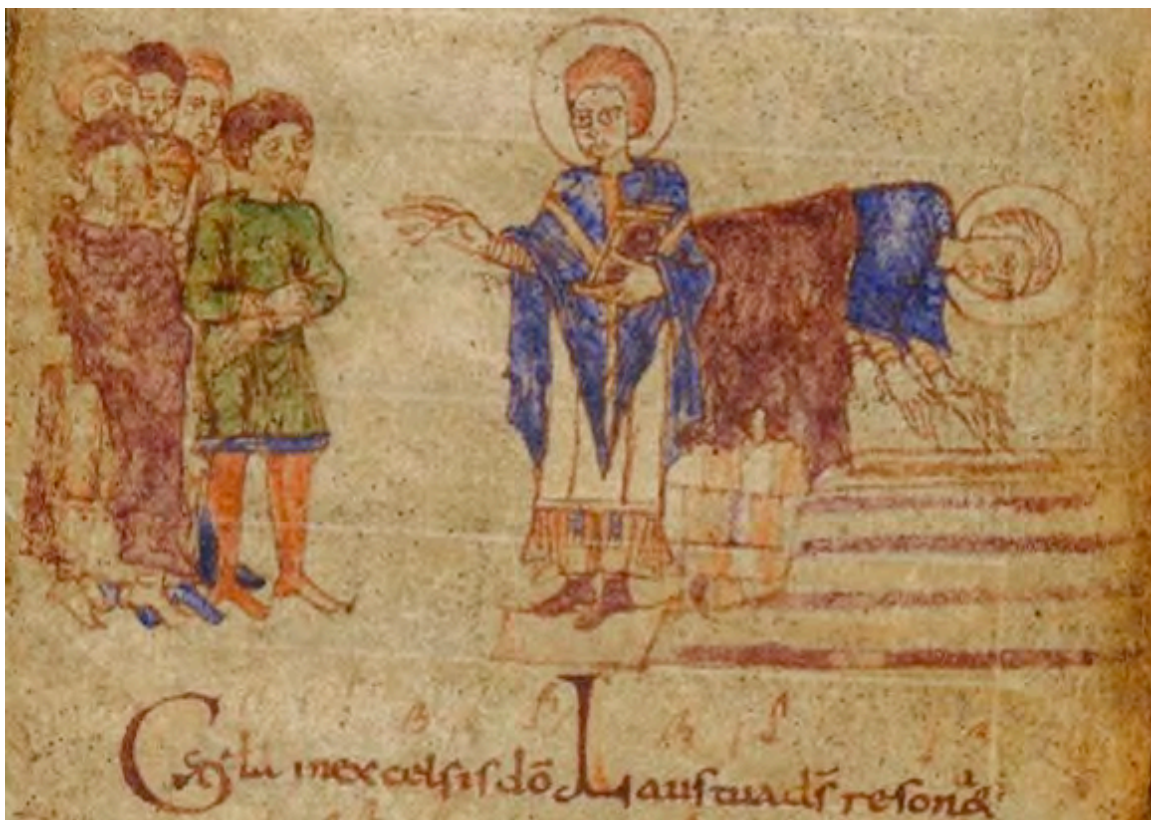 in excelsis dō Laus tua ds̄ reson&